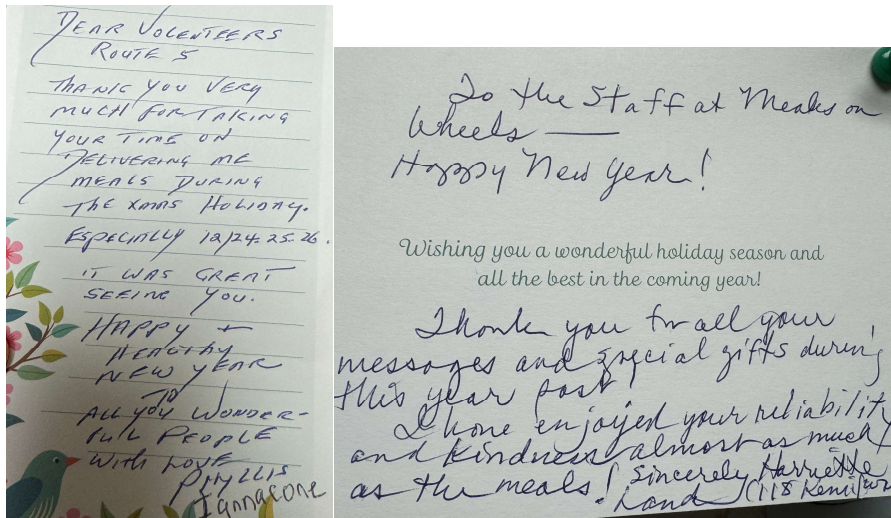 DEAR VOLENTEERS
ROUTE 5
THANK YOU VERY
MUCH FOR TAKING
YOUR TIME ON
DELIVERING ME
MEALS DURING
THE XMAS HOLIDAY.
ESPECIALLY 12/24-25-26.
IT WAS GREAT
SEEING YOU.
HAPPY +
HEALTHY
NEW YEAR
TO
ALL YOU WONDER-
FULL PEOPLE
WITH LOVE
PHYLLIS
Iannacone
To the Staff at Meals on
Wheels —
Happy New Year!
Wishing you a wonderful holiday season and
all the best in the coming year!
Thank you for all your
messages and special gifts during
this year past!
I have enjoyed your reliability
and kindness almost as much
as the meals! Sincerely Harriette
Land (118